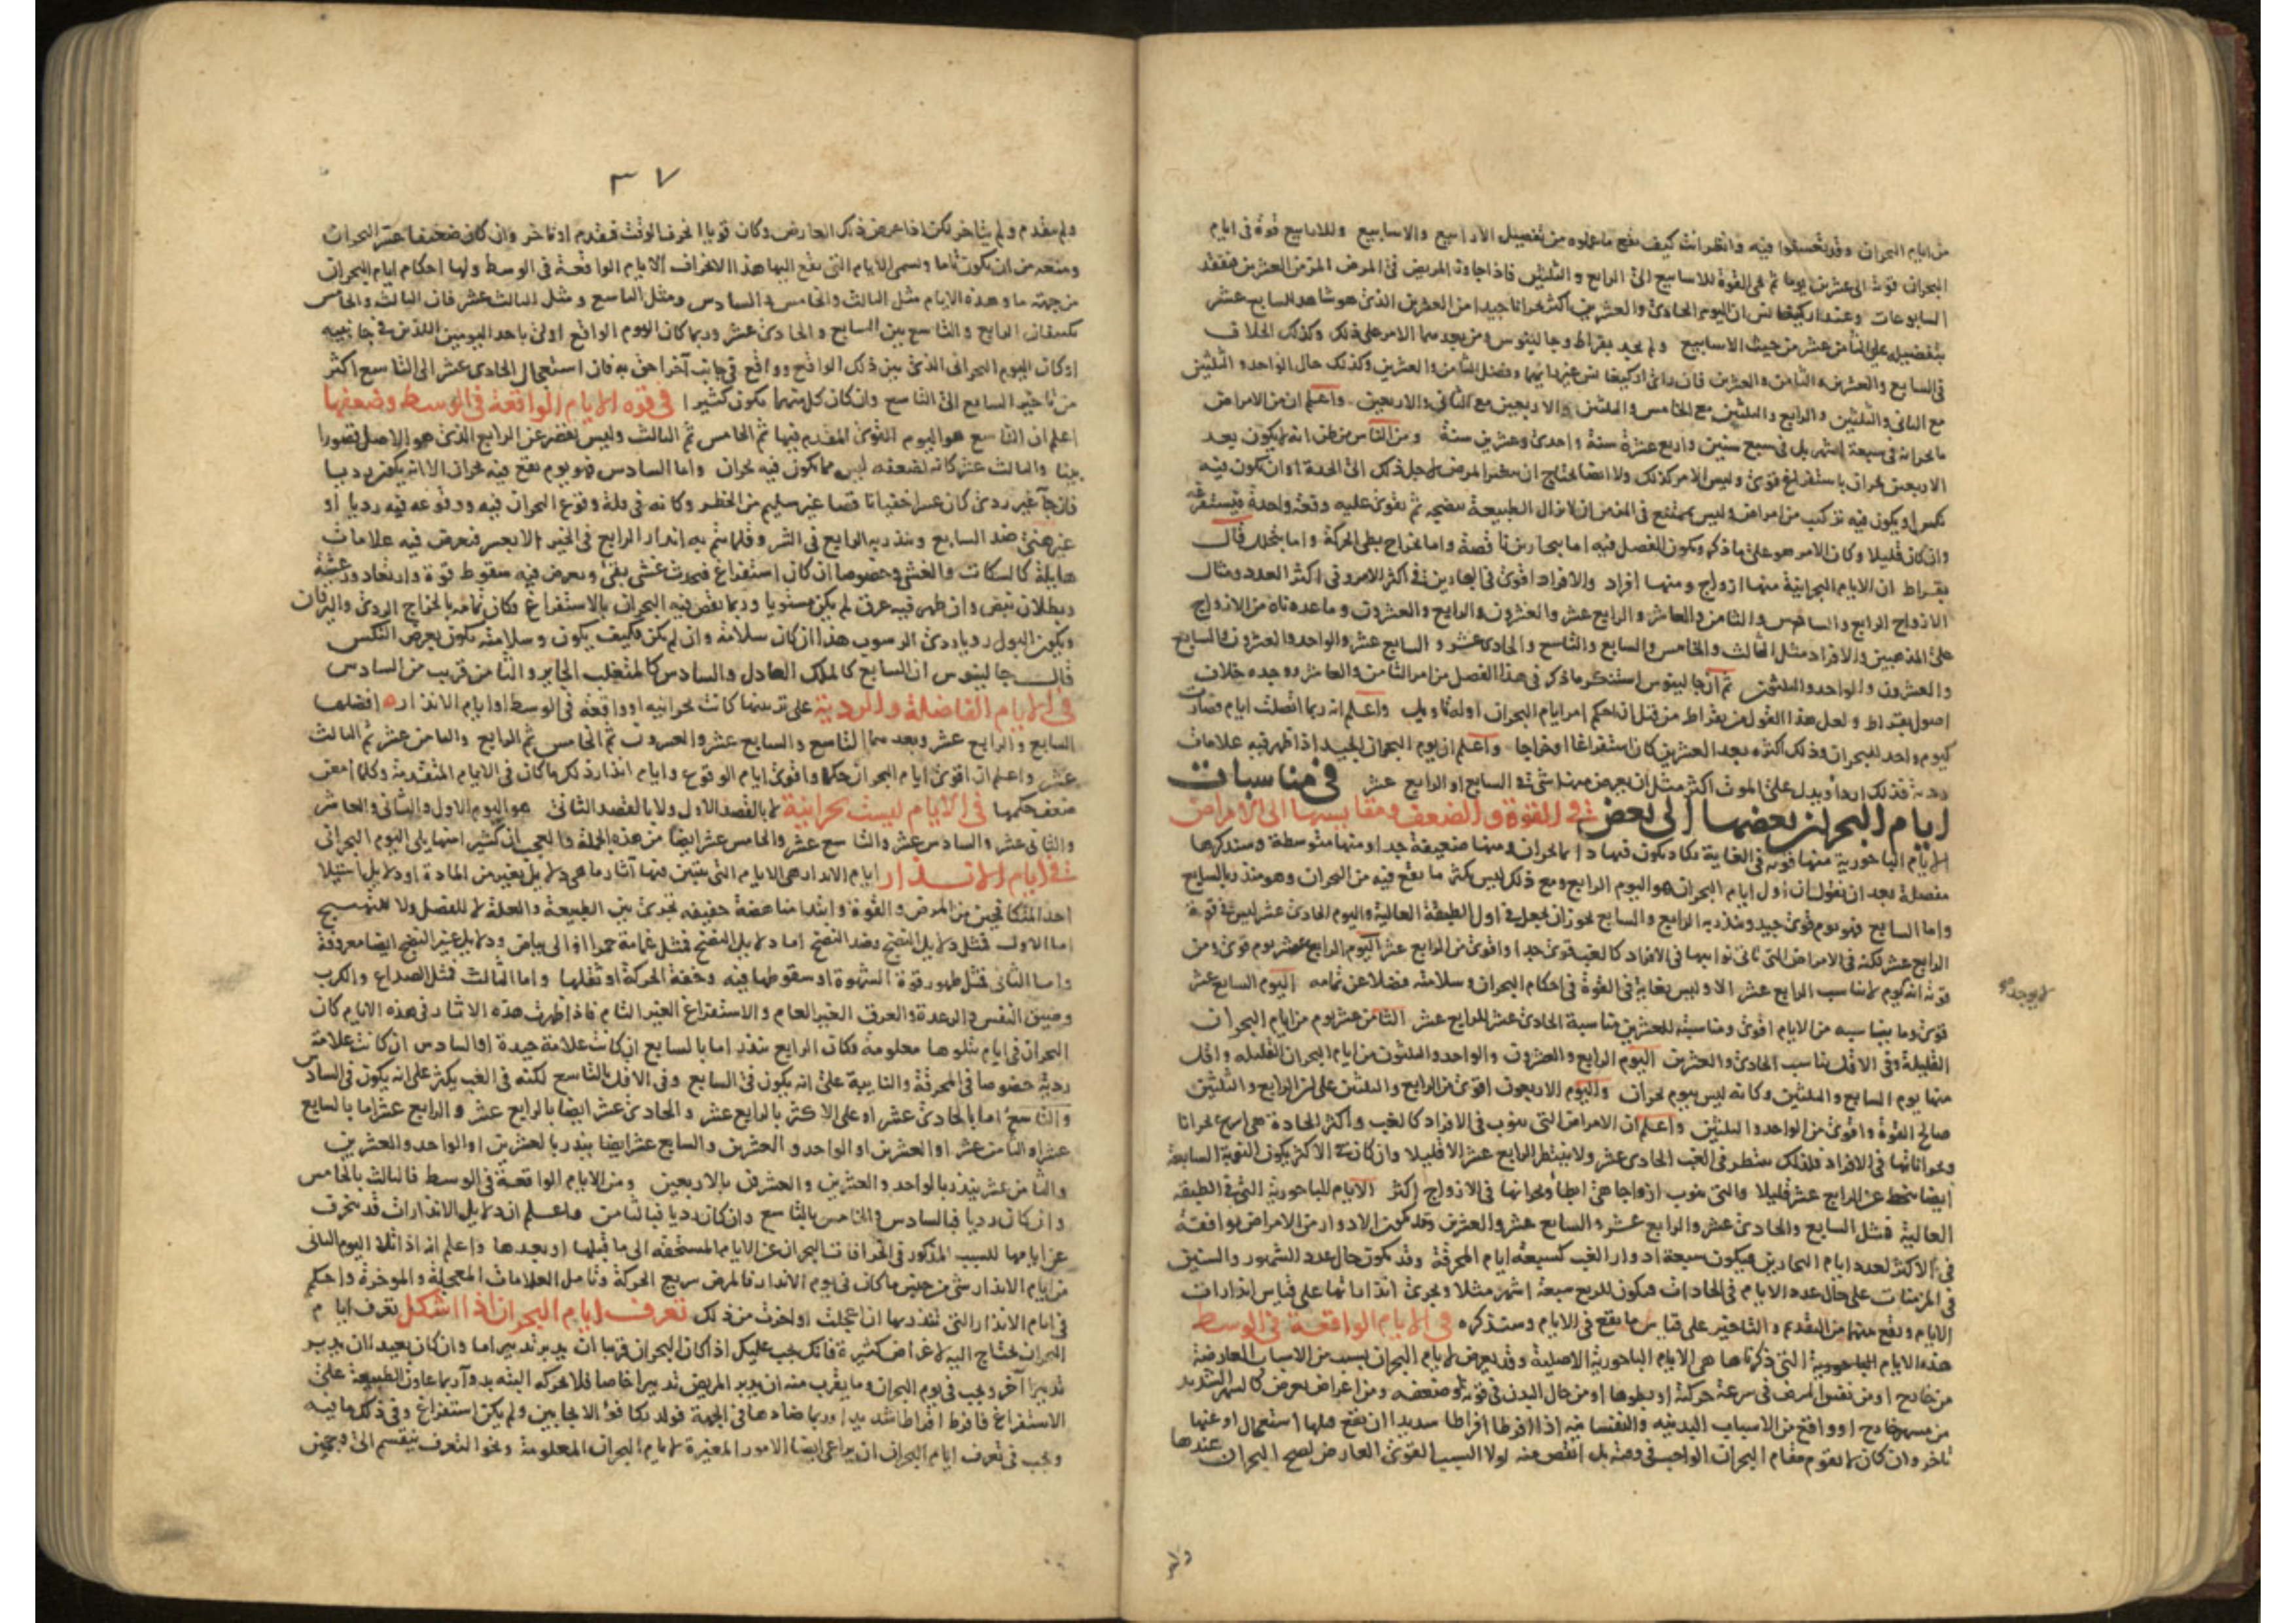 من ايام البحران وقد تعسفوا فيه وانظر انت كيف يقع ما عملوه من تفصيل الارابيع والاسابيع وللارابيع قوة فى ايام
البحران قوته الى عشرين يوما ثم هى القوة للاسابيع الى الرابع والثلثين فاذا جاوز المريض فى المرض المزمن العشرين فتفقد
السابوعات وعند اركيغانس ان اليوم الحادى والعشرين اكثر بحرانا جيدا من العشرين الذى هو شاهد السابع عشر
بتفضيله على الثامن عشر من حيث الاسابيع ولم يجد بقراط وجالينوس ومن بعدهما الامر على ذلك وكذلك الخلاف
فى السابع والعشرين والثامن والعشرين فان راى اركيغانس غير رايهما وفضل الثامن والعشرين وكذلك حال الواحد والثلثين
مع الثانى والثلثين والرابع والثلثين مع الخامس والثلثين والاربعين مع الثانى والاربعين واعلم ان من الامراض
ما بحرانه فى سبعة اشهر بل فى سبع سنين واربع عشرة سنة واحدى وعشرين سنة ومن الناس من ظن انه لا يكون بعد
الاربعين بحران باستفراغ قوى وليس الامر كذلك ولا ايضا يحتاج ان يتغير المرض لاجل ذلك الى الحدة او ان يكون فيه
نكس او يكون فيه تركيب من امراض وليس بممتنع فى المزمن ان لا تزال الطبيعة تنضجه ثم تقوى عليه دفعة واحدة فيستفرغه
وان كان قليلا وكان الامر هو على ما ذكر ويكون الفصل فيه اما ببحارين ناقصة واما بخراج بطى الحركة واما بتحلل قال
بقراط ان الايام البحرانية منها ازواج ومنها افراد والافراد اقوى فى البحارين فى اكثر الامر وفى اكثر العدد ومثال
الازواج الرابع والسادس والثامن والعاشر والرابع عشر والعشرون والرابع والعشرون وما عددناه من الازواج
على المذهبين والافراد مثل الثالث والخامس والسابع والتاسع والحادى عشر والسابع عشر والواحد والعشرون والسابع
والعشرون والواحد والثلثون ثم ان جالينوس استنكر ما ذكر فى هذا الفصل من امر الثامن والعاشر ووجده خلاف
اصول بقراط ولعل هذا القول من بقراط من قبل ان احكم امر ايام البحران اوله تاويل واعلم انه ربما اتصلت ايام فصارت
كيوم واحد للبحران وذلك اكثره بعد العشرين كان استفراغا او خراجا واعلم ان يوم البحران الجيد اذا ظهر فيه علامات
ردية فذلك اردا ويدل على الموت اكثر مثل ان يعرض منها شى فى السابع او الرابع عشر فى مناسبات
ايام البحران بعضها الى بعض فى القوة والضعف ومقايستها الى الامراض
الايام الباحورية منها قوية فى الغاية يكاد يكون فيها دايما بحران ومنها ضعيفة جدا ومنها متوسطة وسنذكرها
مفصلة بعد ان نقول ان اول ايام البحران هو اليوم الرابع ومع ذلك ليس يكثر ما يقع فيه من البحران وهو منذر بالسابع
واما السابع فهو يوم قوى جيد وينذر به الرابع والسابع يجوز ان يجعل فى اول الطبقة العالية واليوم الحادى عشر ليس فى قوة
الرابع عشر لكنه فى الامراض التى تاتى نوايبها فى الافراد كالغب قوى جدا واقوى من الرابع عشر اليوم الرابع عشر يوم قوى ومن
قوته انه يوم لا يناسب الرابع عشر الا وليس بغاية فى القوة فى احكام البحران وسلامته فضلا عن تمامه اليوم السابع عشر
قوى وما يناسبه من الايام اقوى ومناسبته للعشرين مناسبة الحادى عشر للرابع عشر الثامن عشر يوم من ايام البحران
القليلة وفى الاقل يناسب الحادى والعشرين اليوم الرابع والعشرون والواحد والثلثون من ايام البحران القليله واقل
منها يوم السابع والثلثين وكانه ليس يوم بحران واليوم الاربعون اقوى من الرابع والثلثين على ان الرابع والثلثين
صالح القوة واقوى من الواحد والثلثين واعلم ان الامراض التى تنوب فى الافراد كالغب واكثر الحادة هى اسرع بحرانا
وبحراناتها فى الافراد فلذلك ينتظر فى الغب الحادى عشر ولا ينتظر الرابع عشر الا قليلا وان كان فى الاكثر يكون النوبة السابعة
ايضا تنحط عن الرابع عشر قليلا والتى تنوب ازواجا هى ابطا وبحرانها فى الازواج اكثر الايام الباحورية التى فى الطبقه
العالية فمثل السابع والحادى عشر والرابع عشر والسابع عشر والعشرين وقد تكون الادوار من الامراض موافقة
فى الاكثر لعدد ايام البحارين فيكون سبعة ادوار الغب كسبعة ايام المحرقة وقد تكون حال عدد الشهور والسنين
فى المزمنات على حال عدد الايام فى الحادات فيكون للربع سبعة اشهر مثلا ويجرى انذاراتها على قياس انذارات
الايام ويقع منها من التقدم والتاخير على قياس ما يقع فى الايام وسنذكره فى الايام الواقعة فى الوسط
هذه الايام الباحورية التى ذكرناها هى الايام الباحورية الاصلية وقد يعرض لايام البحران بسبب من الاسباب العارضة
من خارج او من نفس المرض فى سرعة حركته او بطوها او من حال البدن فى قوته او ضعفه ومن اعراض يعرض كالسهر الشديد
من سهر خارج او واقع من الاسباب البدنيه والنفسانية اذا افرطا افراطا شديدا ان يقع فيها استعجال او عنها
تاخر وان كان لا يقوم مقام البحران الواجب فى وقته بل انقص منه لولا السبب القوى العارض لصح البحران عندها
لا يوجد
ولم
٣٧
ولم يتقدم ولم يتاخر لكن اذا عرض ذلك العارض وكان قويا انحرف الوقت فتقدم او تاخر وان كان ضعيفا عسر البحران
ومنعه من ان يكون تاما وتسمى الايام التى يقع اليها هذا الانحراف الايام الواقعة فى الوسط ولها احكام ايام البحران
من جهة ما وهذه الايام مثل الثالث والخامس والسادس ومثل التاسع ومثل الثالث عشر فان الثالث والخامس
يكنفان الرابع والتاسع بين السابع والحادى عشر وربما كان اليوم الواقع اولى باحد اليومين اللذين فى جانبيه
او كان اليوم البحرانى الذى بين ذلك الواقع وواقع فى جانب آخر احق به فان استعجال الحادى عشر الى التاسع اكثر
من تاخير السابع الى التاسع وان كان كل منهما يكون كثيرا فى قوة الايام الواقعة فى الوسط وضعفها
اعلم ان التاسع هو اليوم القوى المقدم فيها ثم الخامس ثم الثالث وليس يقصر عن الرابع الذى هو الاصل قصورا
بينا والثالث عشر كانه لضعفه ليس مما يكون فيه بحران واما السادس فهو يوم يقع فيه بحران الا انه يكون رديا
فان جاء غير ردى كان عسرا خفيا ناقصا غير سليم من الخطر وكانه فى قلة وقوع البحران فيه ووقوعه فيه رديا او
غير هنى ضد السابع وينذر به الرابع فى الشر وقلما يتم به انذار الرابع فى الخير الا بعسر فيعرض فيه علامات
هايلة كالسكات والغشى وخصوصا ان كان استفراغ فيحدث غشى بقى ويعرض فيه سقوط قوة وارتعاد ورعشة
وبطلان نبض وان ظهر فيه عرق لم يكن مستويا وربما نقص فيه البحران بالاستفراغ فكان تمامه بالخراج الردى واليرقان
ويكون البول رديا ردى الرسوب هذا ان كان سلامة وان لم يكن فكيف يكون وسلامته يكون بعرض النكس
قال جالينوس ان السابع كالملك العادل والسادس كالمتغلب الجاير والثامن قريب من السادس
فى الايام الفاضلة والردية على ترتيبها كانت بحرانيه او واقعة فى الوسط او ايام الانذار ه افضلها
السابع والرابع عشر وبعدهما التاسع والسابع عشر والعشرون ثم الخامس ثم الرابع والثامن عشر ثم الثالث
عشر واعلم ان اقوى ايام البحران حكما واقوى ايام الوقوع وايام انذار ذلك ما كان فى الايام المتقدمة وكلما امعن
ضعف حكمها فى الايام ليست بحرانية لا بالقصد الاول ولا بالقصد الثانى هو اليوم الاول والثانى والعاشر
والثانى عشر والسادس عشر والتاسع عشر والخامس عشر ايضا من هذه الجملة والعجب ان كثيرا منها يلى اليوم البحرانى
فى ايام الانذار ايام الانذار هى الايام التى يتبين فيها آثار ما هى دلايل تغير من المادة او دلايل استيلا
احد المتكافحين من المرض والقوة وابتدا مناهضة خفيفه تجرى بين الطبيعة والعلة لا للفصل ولا للتهييج
اما الاول فمثل دلايل النضج وضد النضج اما دلايل النضج فمثل غمامة حمرا او الى بياض ودلايل غير النضج ايضا معروفة
واما الثانى فمثل ظهور قوة الشهوة او سقوطها فيه وخفة الحركة او ثقلها واما الثالث فمثل الصداع والكرب
وضيق النفس والرعدة والعرق الغير العام والاستفراغ الغير التام فاذا ظهرت هذه الاثار فى هذه الايام كان
البحران فى ايام يتلوها معلومة فكان الرابع ينذر اما بالسابع ان كانت علامة جيدة او السادس ان كانت علامة
ردية خصوصا فى المحرقة والنايبة على انه يكون فى السابع وفى الاقل بالتاسع لكنه فى الغب يكثر على انه يكون فى السادس
والتاسع اما بالحادى عشر او على الاكثر بالرابع عشر والحادى عشر ايضا بالرابع عشر والرابع عشر اما بالسابع
عشر او الثامن عشر او العشرين او الواحد والعشرين والسابع عشر ايضا ينذر بالعشرين او الواحد والعشرين
والثامن عشر ينذر بالواحد والعشرين والعشرون بالاربعين ومن الايام الواقعة فى الوسط فالثالث بالخامس
وان كان رديا فبالسادس والخامس بالتاسع وان كان رديا فبالثامن واعلم ان دلايل الانذارات قد ينحرف
عن ايامها للسبب المذكور فى انحرافات البحران عن الايام المستحقه الى ما قبلها او بعدها واعلم انه اذا تلا اليوم الثانى
من ايام الانذار شى من جنس ما كان فى يوم الانذار فالمرض سريع الحركة وتامل العلامات المعجلة والموخرة واحكم
فى ايام الانذار التى ينذر بها ان عجلت او اخرت من ذلك تعرف ايام البحران اذا اشكل تعرف ايام
البحران يحتاج اليه لاغراض كثيرة فانك يجب عليك اذا كان البحران قريبا ان تدبر تدبيرا ما وان كان بعيدا ان تدبر
تدبيرا آخر ويجب فى يوم البحران وما يقرب منه ان يدبر المريض تدبيرا خاصا فلا يحركه البتة بدوآ ربما عاون الطبيعة على
الاستفراغ فافرط افراطا شديدا وربما ضادها فى الجهة فولد تكافوا الاجانبين ولم يكن استفراغ وفى ذلك ما فيه
ويجب فى تعرف ايام البحران ان يراعى ايضا الامور المغيرة لايام البحران المعلومة ونحو التعرف ينقسم الى وجهين